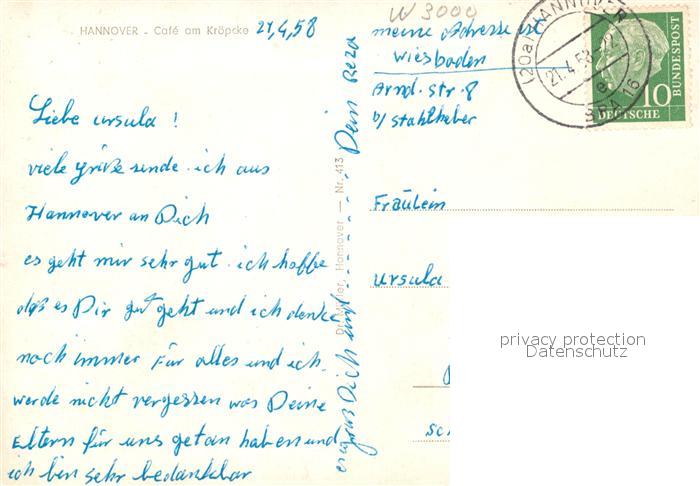 HANNOVER - Café am Kröpcke
21,4,58
Liebe Ursula !
viele Grüße sende ich aus
Hannover an Dich
es geht mir sehr gut. ich hoffe
daß es Dir gut geht und ich denke
noch immer Für alles und ich
werde nicht vergessen was Deine
Eltern für uns getan haben und
ich bin sehr bedankbar
Dich und ------- Dein Reza
Hannover — Nr. 413
W 3000
meine Adresse ist
Wiesbaden
Arnd. str. 8
b/ Stahlheber
Fräulein
Ursula
(20a) HANNOVER
21.4.58
e
SBA 16
10
DEUTSCHE
BUNDESPOST
privacy protection
Datenschutz